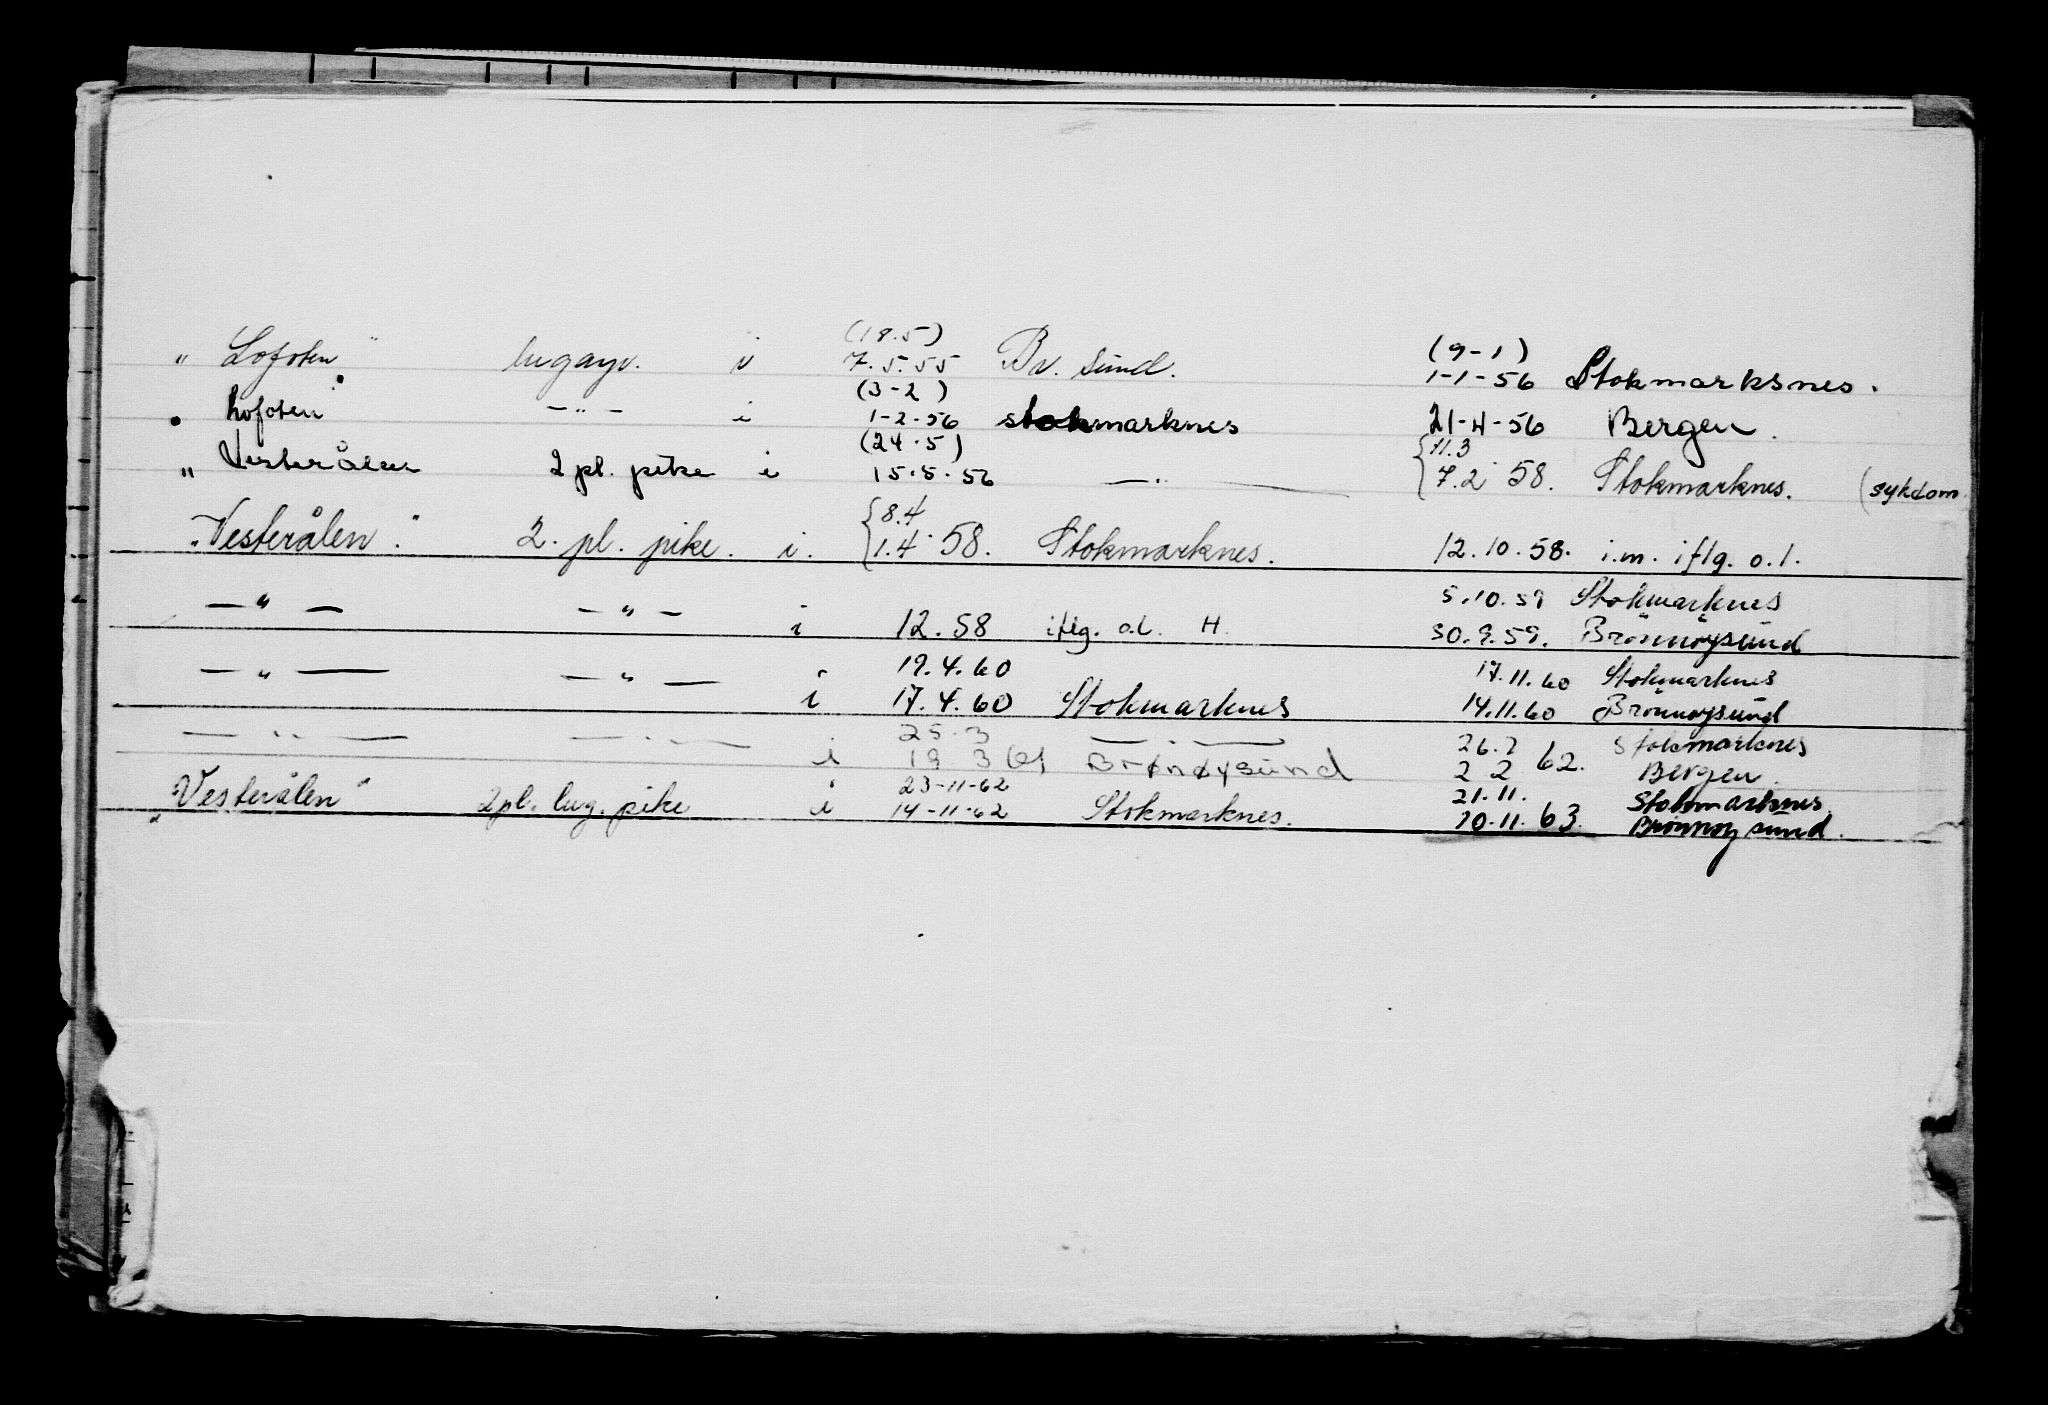 (18.5)
(9-1)
" Lofoten " i 7.5.55 Br. sund. 1-1-56 Stokmarksnes.
(3-2)
" Lofoten " -"- i 1-2-56 stokmarknes 21-4-56 Bergen.
(24.5) { 11.3
" Vesterålen 2 pl. pike i 15.5.56 —"— 7.2 58. Stokmarknes. (sykdom
{ 8.4
"Vesterålen". 2. pl. pike. i. 1.4 58. Stokmarknes. 12.10.58. i.m. iflg. o.l.
5.10.59 Stokmarknes
—"— —"— i 12.58 iflg. o.l. H. 30.9.59. Brönnöysund
—"— —"— 19.4.60 17.11.60 Stokmarknes
i 17.4.60 Stokmarknes 14.11.60 Brönnöysund
—"— —"— 25.3 —"— 26.2 Stokmarknes
i 19.3 61 Brønøysund 2.2 62. Bergen.
23-11-62 21.11. Stokmarknes
"Vesterålen" 2pl. lug. pike i 14-11-62 Stokmarknes. 10.11.63. Brönnöysund.